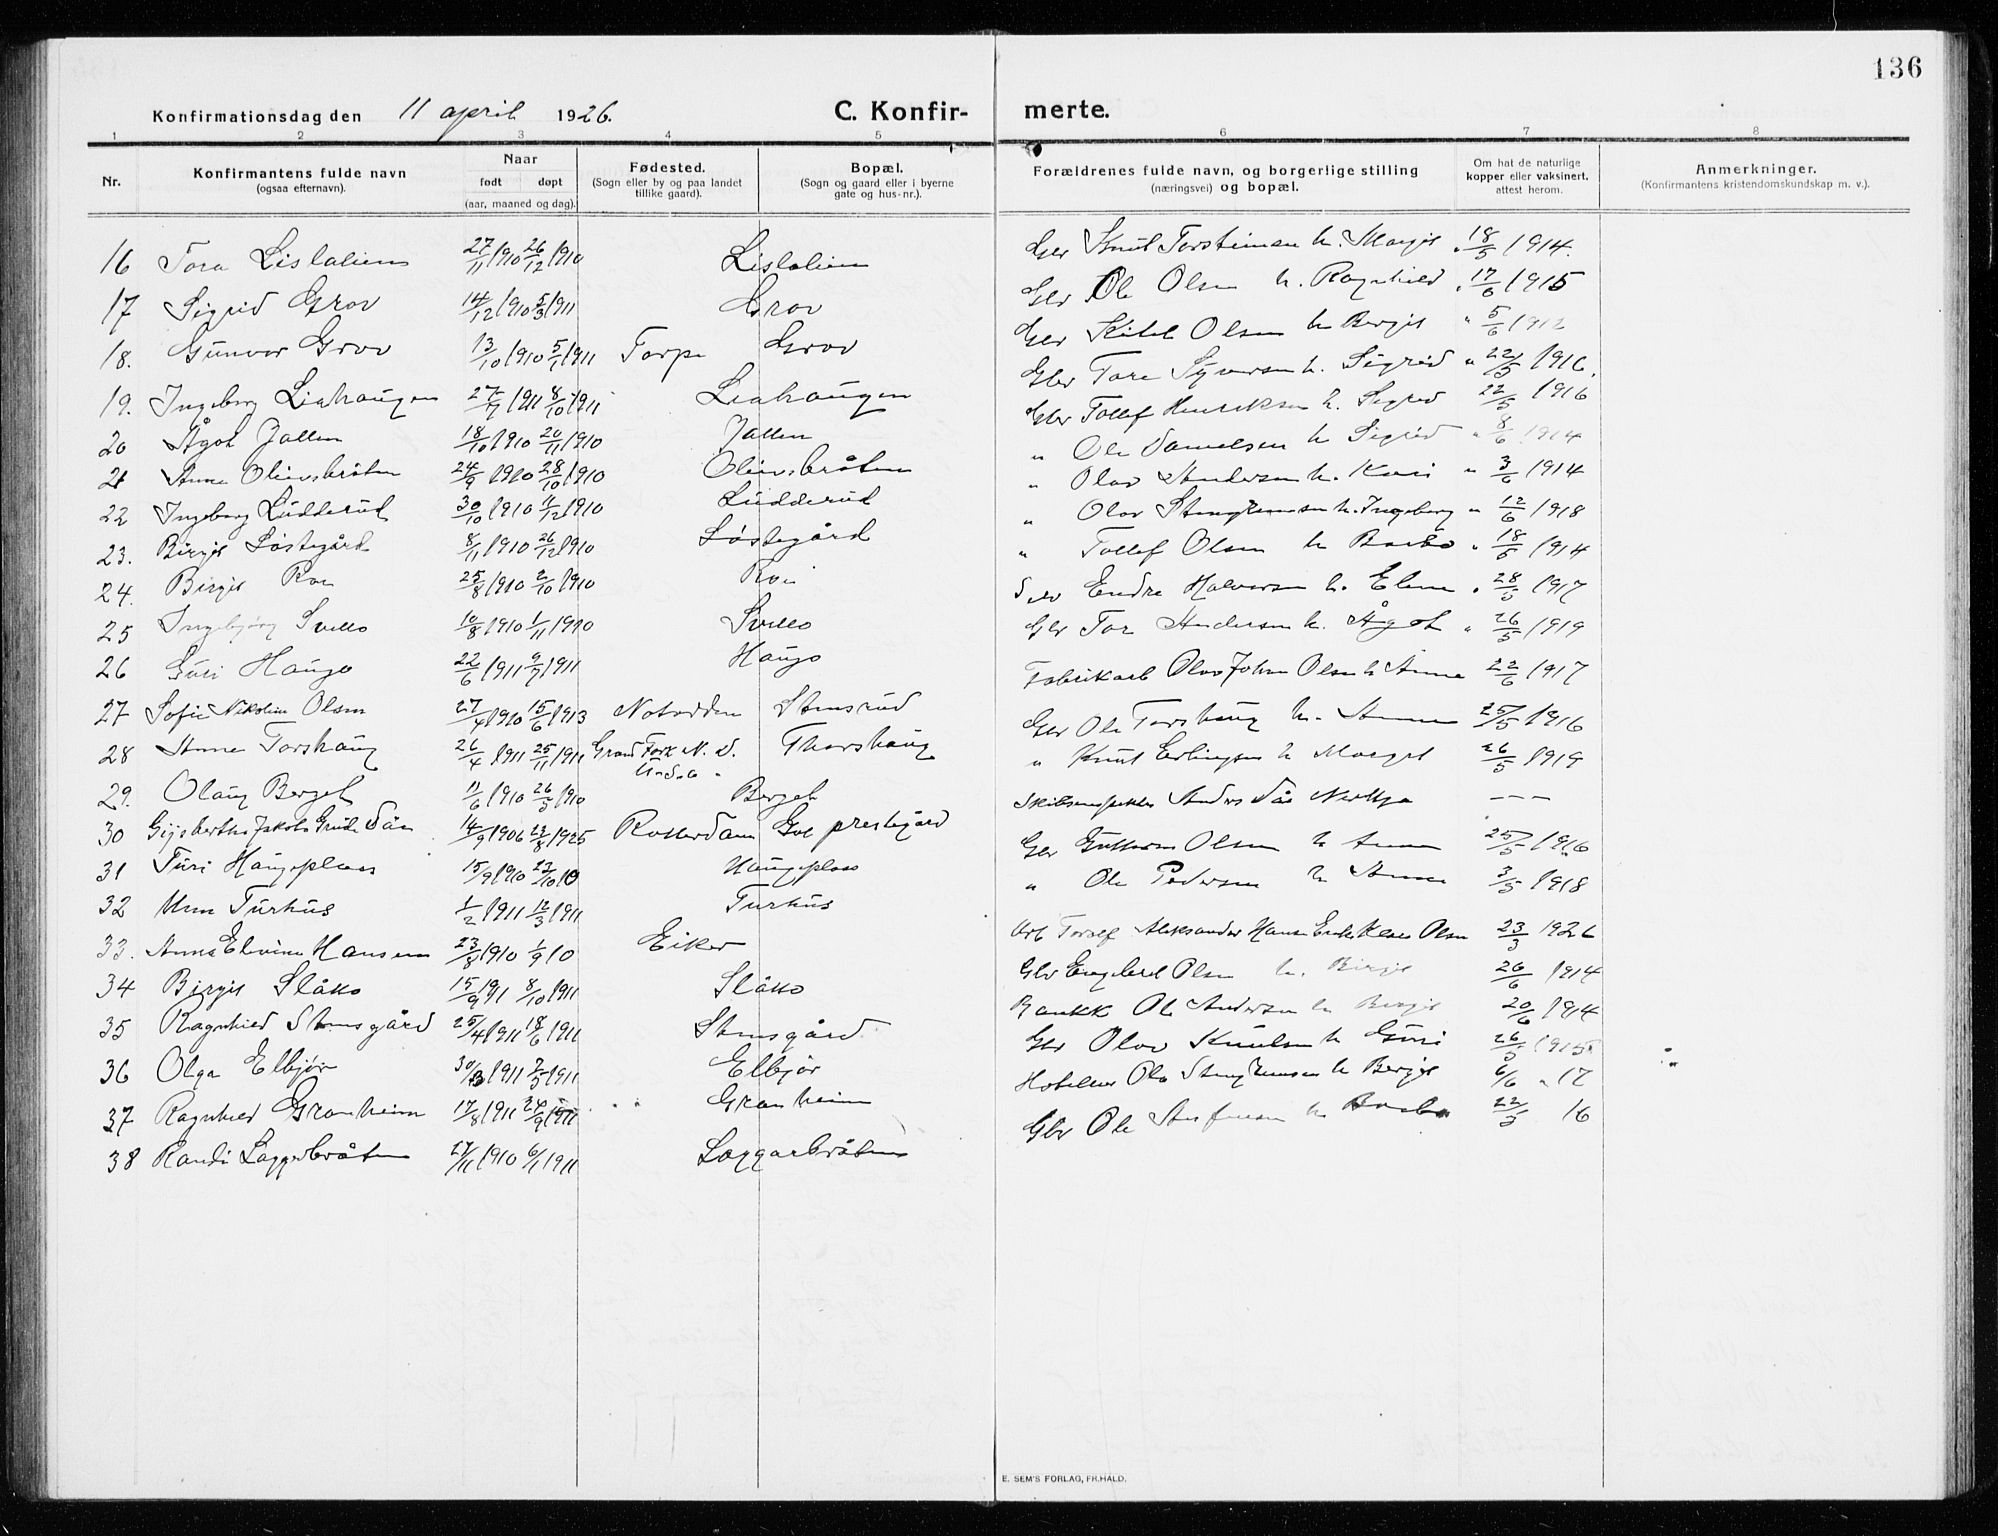 136
Konfirmationsdag den 11 april 1926.
C. Konfirmerte.
1 2 3 4 5 6 7 8
Nr.
Konfirmantens fulde navn
(ogsaa efternavn).
Naar
født døpt
(aar, maaned og dag).
Fødested.
(Sogn eller by og paa landet
tillike gaard).
Bopæl.
(Sogn og gaard eller i byerne
gate og hus-nr.).
Forældrenes fulde navn, og borgerlige stilling
(næringsvei) og bopæl.
Om hat de naturlige
kopper eller vaksinert,
attest herom.
Anmerkninger.
(Konfirmantens kristendomskundskap m. v.).
16 Tora Lislalien 27/11 1910 26/12 1910 Lislalien Gbr Knut Torsteinsen h. Margit " 18/5 1914.
17 Sigrid Grov 14/12 1910 5/3 1911 Grov Gbr Ole Olsen h. Ragnhild " 17/6 1915
18. Gunvor Grov 13/10 1910 5/1 1911 Torpe Grov Gbr Kitel Olsen h Bergit " 5/6 1912
19. Ingeborg Liahaugen 27/7 1911 8/10 1911 Liahaugen Gbr Tore Syversen h. Sigrid " 22/5 1916.
20 Ågot Jallen 18/10 1910 20/11 1910 Jallen Gbr Tollef Henriksen h. Sigrid 22/5 1916
21 Anna Olievsbråten 24/9 1910 28/10 1910 Olievsbråten " Ole Danielsen h Sigrid " 8/6 1914
22 Ingeborg Ludderud 30/10 1910 11/12 1910 Ludderud " Olav Andersen h. Kari " 3/6 1914
23. Birgit Løstegård 8/11 1910 26/12 1910 Løstegård " Olav h. Ingeborg " 12/6 1918
24. Birgit Roi 25/8 1910 2/10 1910 Roi " Tollef Olsen h Barbo " 18/5 1914
25 Ingebjørg Svello 10/8 1910 1/11 1910 Svello Endre Halvorsen h. Eline " 28/5 1917
26 Guri Haugo 22/6 1911 9/7 1911 Haugo Gbr Tor Andersen h. Ågot " 26/5 1919
27 Sofie Nikoline Olsen 27/4 1910 15/6 1913 Notodden Stensrud Fabrikarb Olav Johan Olsen h Anna 22/6 1917
28 Anna Torshaug 26/4 1911 25/11 1911 Grand Fork N. D. Thorshaug Gbr Ole Torshaug h. Anna 25/5 1916
U.S.A.
29. Olaug Berget 11/6 1910 26/3 1910 Berget " Knut Erlingsen h Marget 26/5 1919
30 Gijsbertha Jakoba Dås 14/9 1906 23/8 1925 Rotterdam Gol prestegård Skibsinspektør Anders Dås - - -
31 Turi Haugsplass 15/9 1910 23/10 10 Haugsplass Gbr Guttorm Olsen h Anna 25/5 1916
32 Turhus 1/2 1911 12/3 1911 Turhus " Ole Pedersen h Anna 3/5 1918
33. Anna Elvina Hansen 23/8 1910 1/9 10 Eiker Arb Torolf Aleksander Hansen Olsen 23/3 1926
34 Birgit Slåtto 15/9 1911 8/10 1911 Slåtto Gbr Engebret Olsen h. Birgit 26/6 1914
35 Ragnhild Stensgård 25/4 1911 18/6 1911 Stensgård Bankk Ole Andersen h Birgit 20/6 1914
36 Olga Elbjør 30/3 1911 7/5 1911 Elbjør Gbr Olav Knutsen h Guri 26/5 1915
37 Ragnhild Granheim 17/8 1911 24/9 1911 Granheim Hoteleier Ola h Bergit 6/6 " 17
38 Randi Laggarbråten 27/11 1910 6/1 1911 Laggarbråten Gbr Ole h Barbo 22/3 16
E. SEM'S FORLAG, FR.HALD.